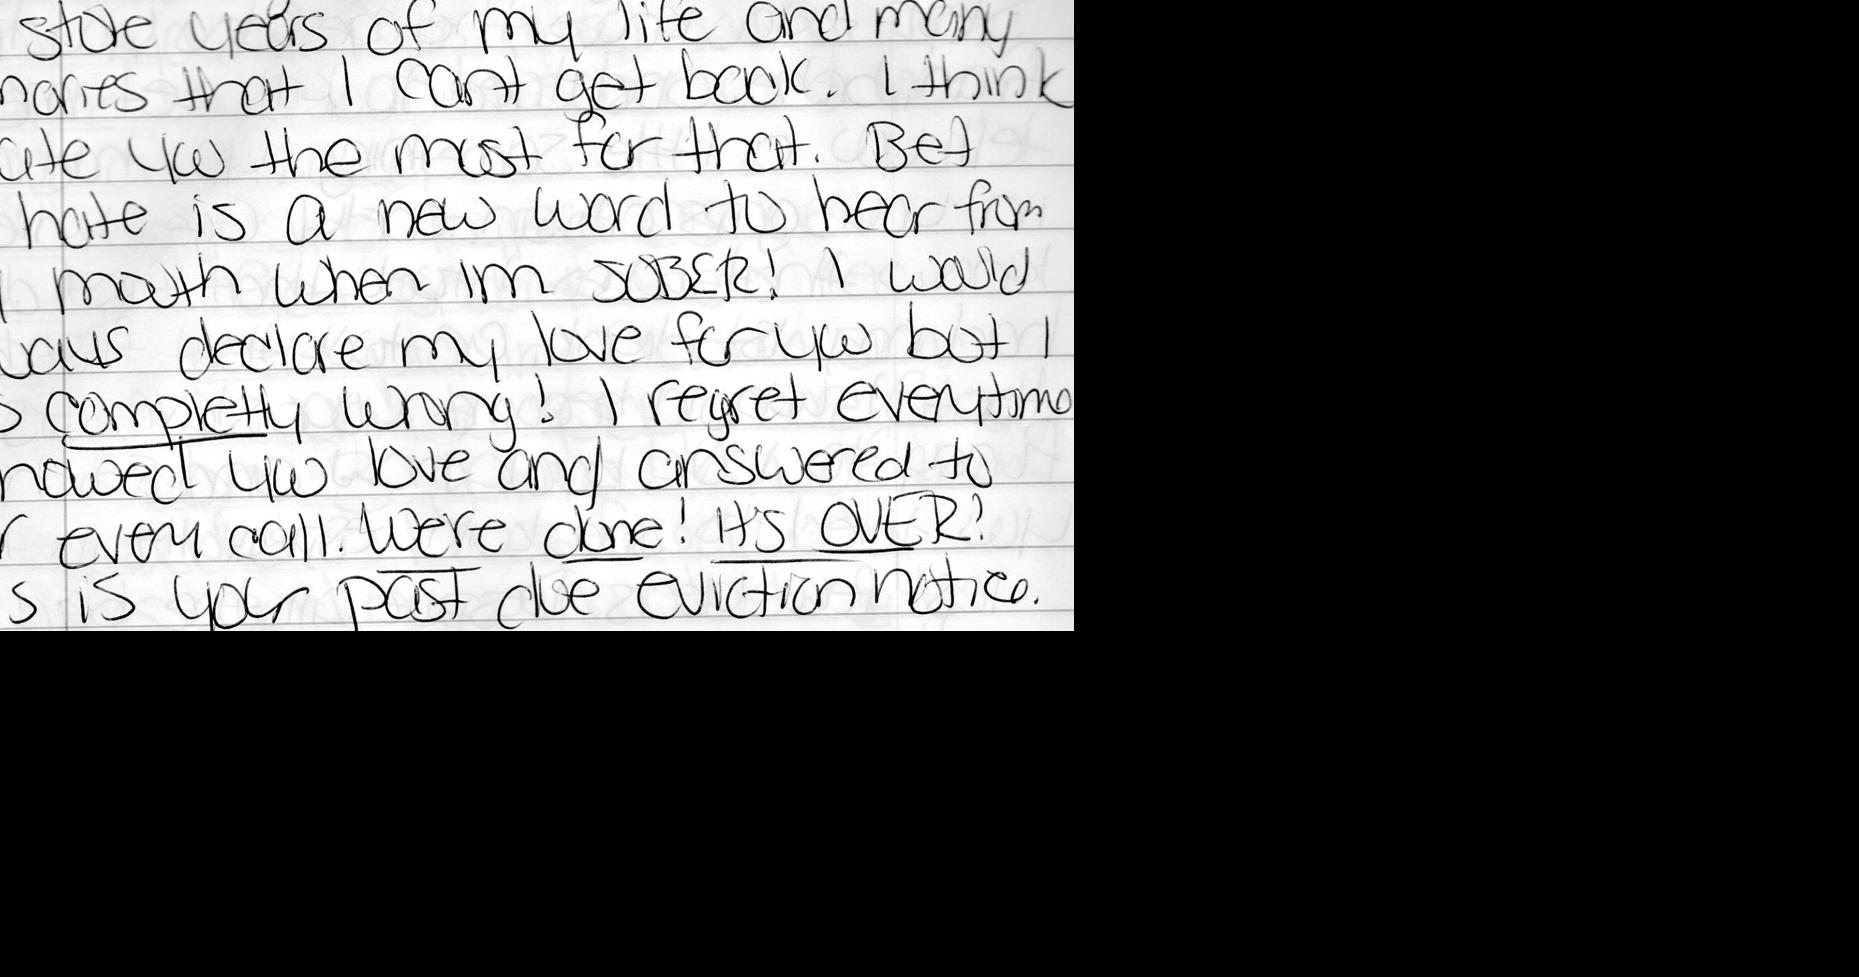 stole years of my life and many
mories that I cant get back. I think
ate you the most for that. Bet
hate is a new word to hear from
mouth when Im SOBER! I would
ways declare my love for you but I
s completly wrong! I regret everytime
howed you love and answered to
r every call. We're done! It's OVER!
s is your past due eviction notice.